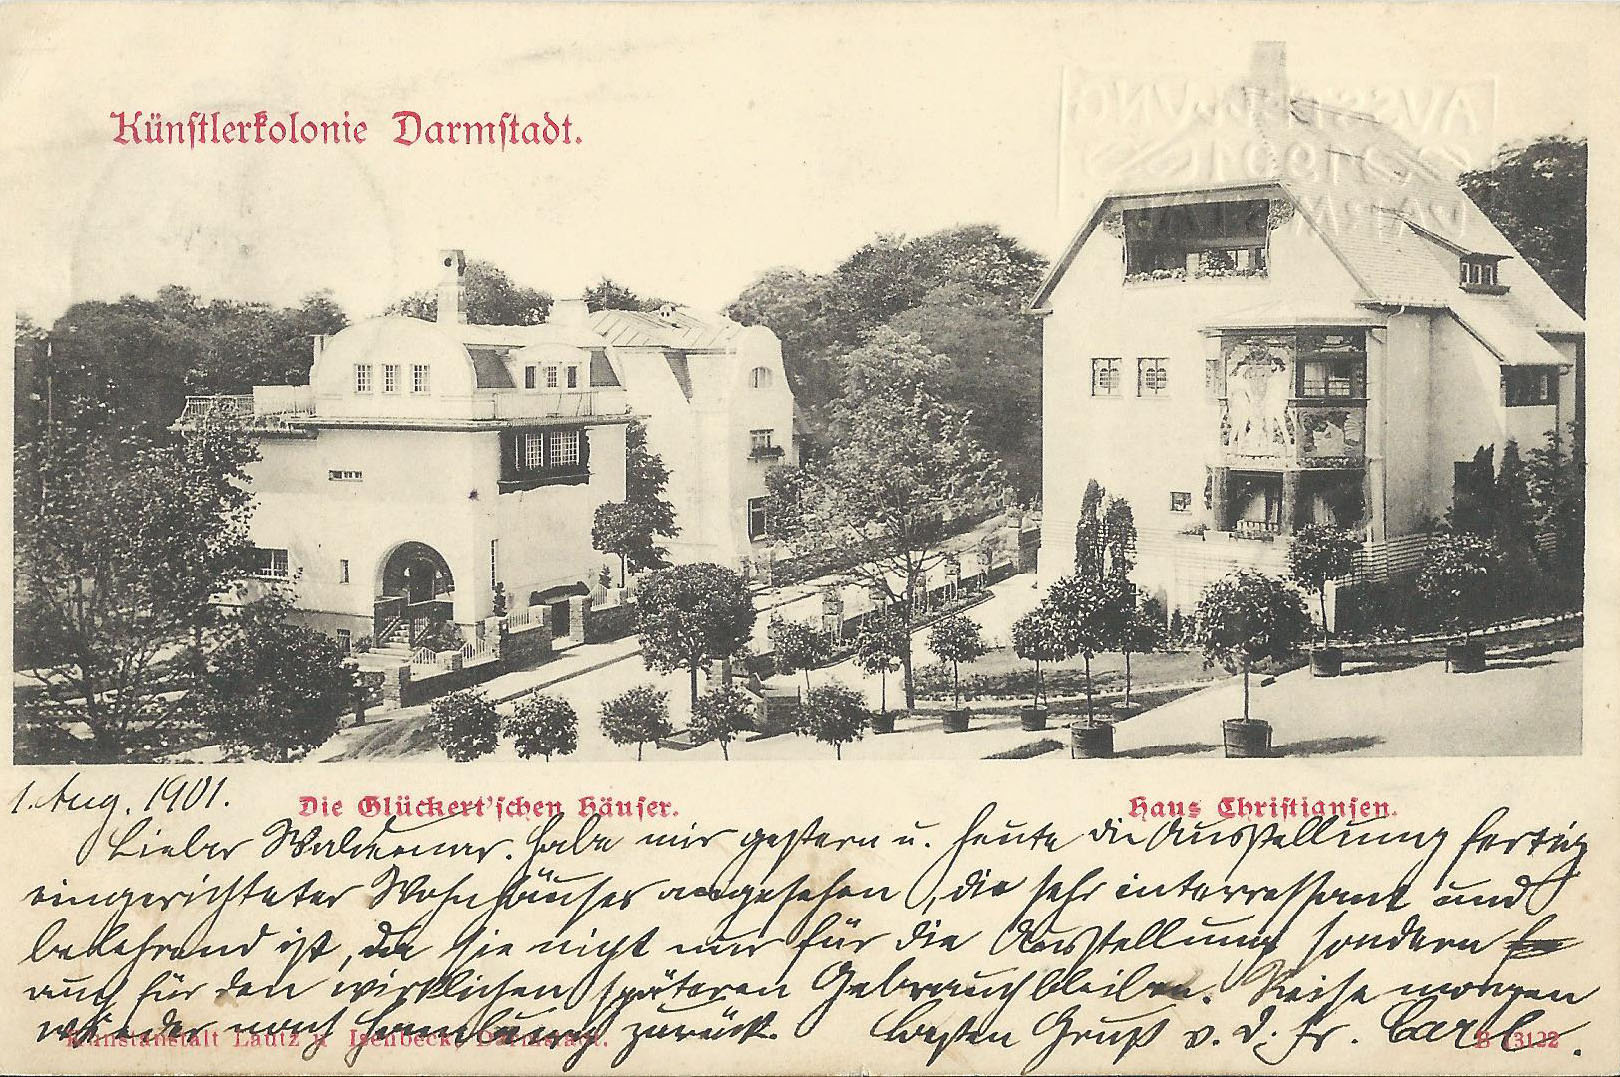 Künstlerkolonie Darmstadt.
AUSSTELLUNG
1901
DARMSTADT
1. Aug. 1901.
Die Glückert'schen Häuser.
Haus Christiansen.
Lieber Waldemar. Habe mir gestern u. heute die Ausstellung fertig
eingerichteter Wohnhäuser angesehen, die sehr interressant und
belehrend ist, da sie nicht nur für die Ausstellung sondern
auch für den wirklichen späteren Gebrauch bleiben. Reise morgen
wieder nach Hamburg zurück. Besten Gruß v. D. Fr. Carl
Kunstanstalt Lautz u Isenbeck, Darmstadt.
B 13122